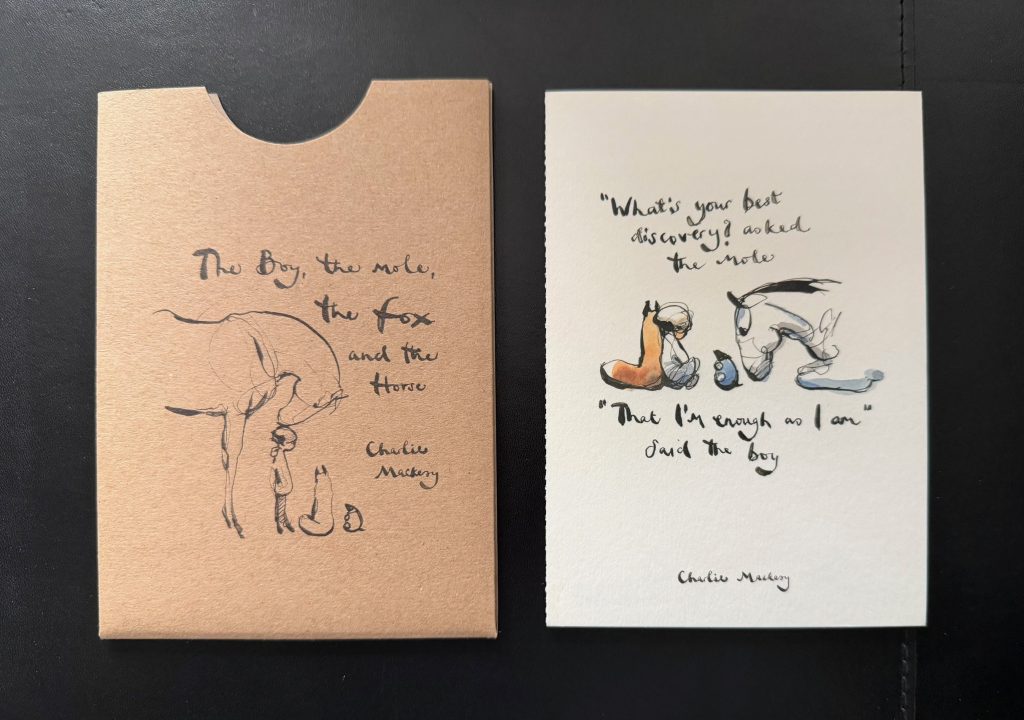 The Boy, the mole,
the fox
and the
Horse
Charlie
Mackesy
"What's your best
discovery? asked
the Mole
"That I'm enough as I am"
Said the boy
Charlie Mackesy